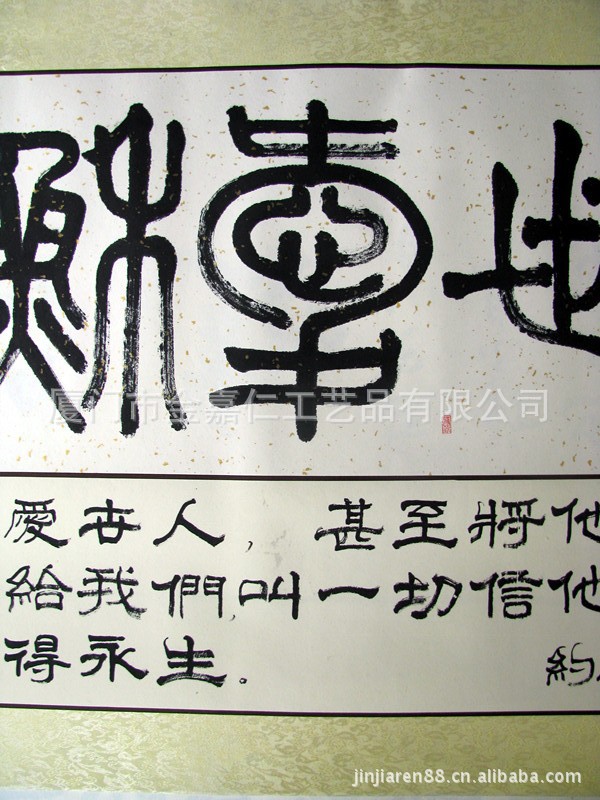 穌愛世
厦门市金嘉仁工艺品有限公司
愛世人,甚至將他
給我們,叫一切信他
得永生. 約
jinjiaren88.cn.alibaba.com